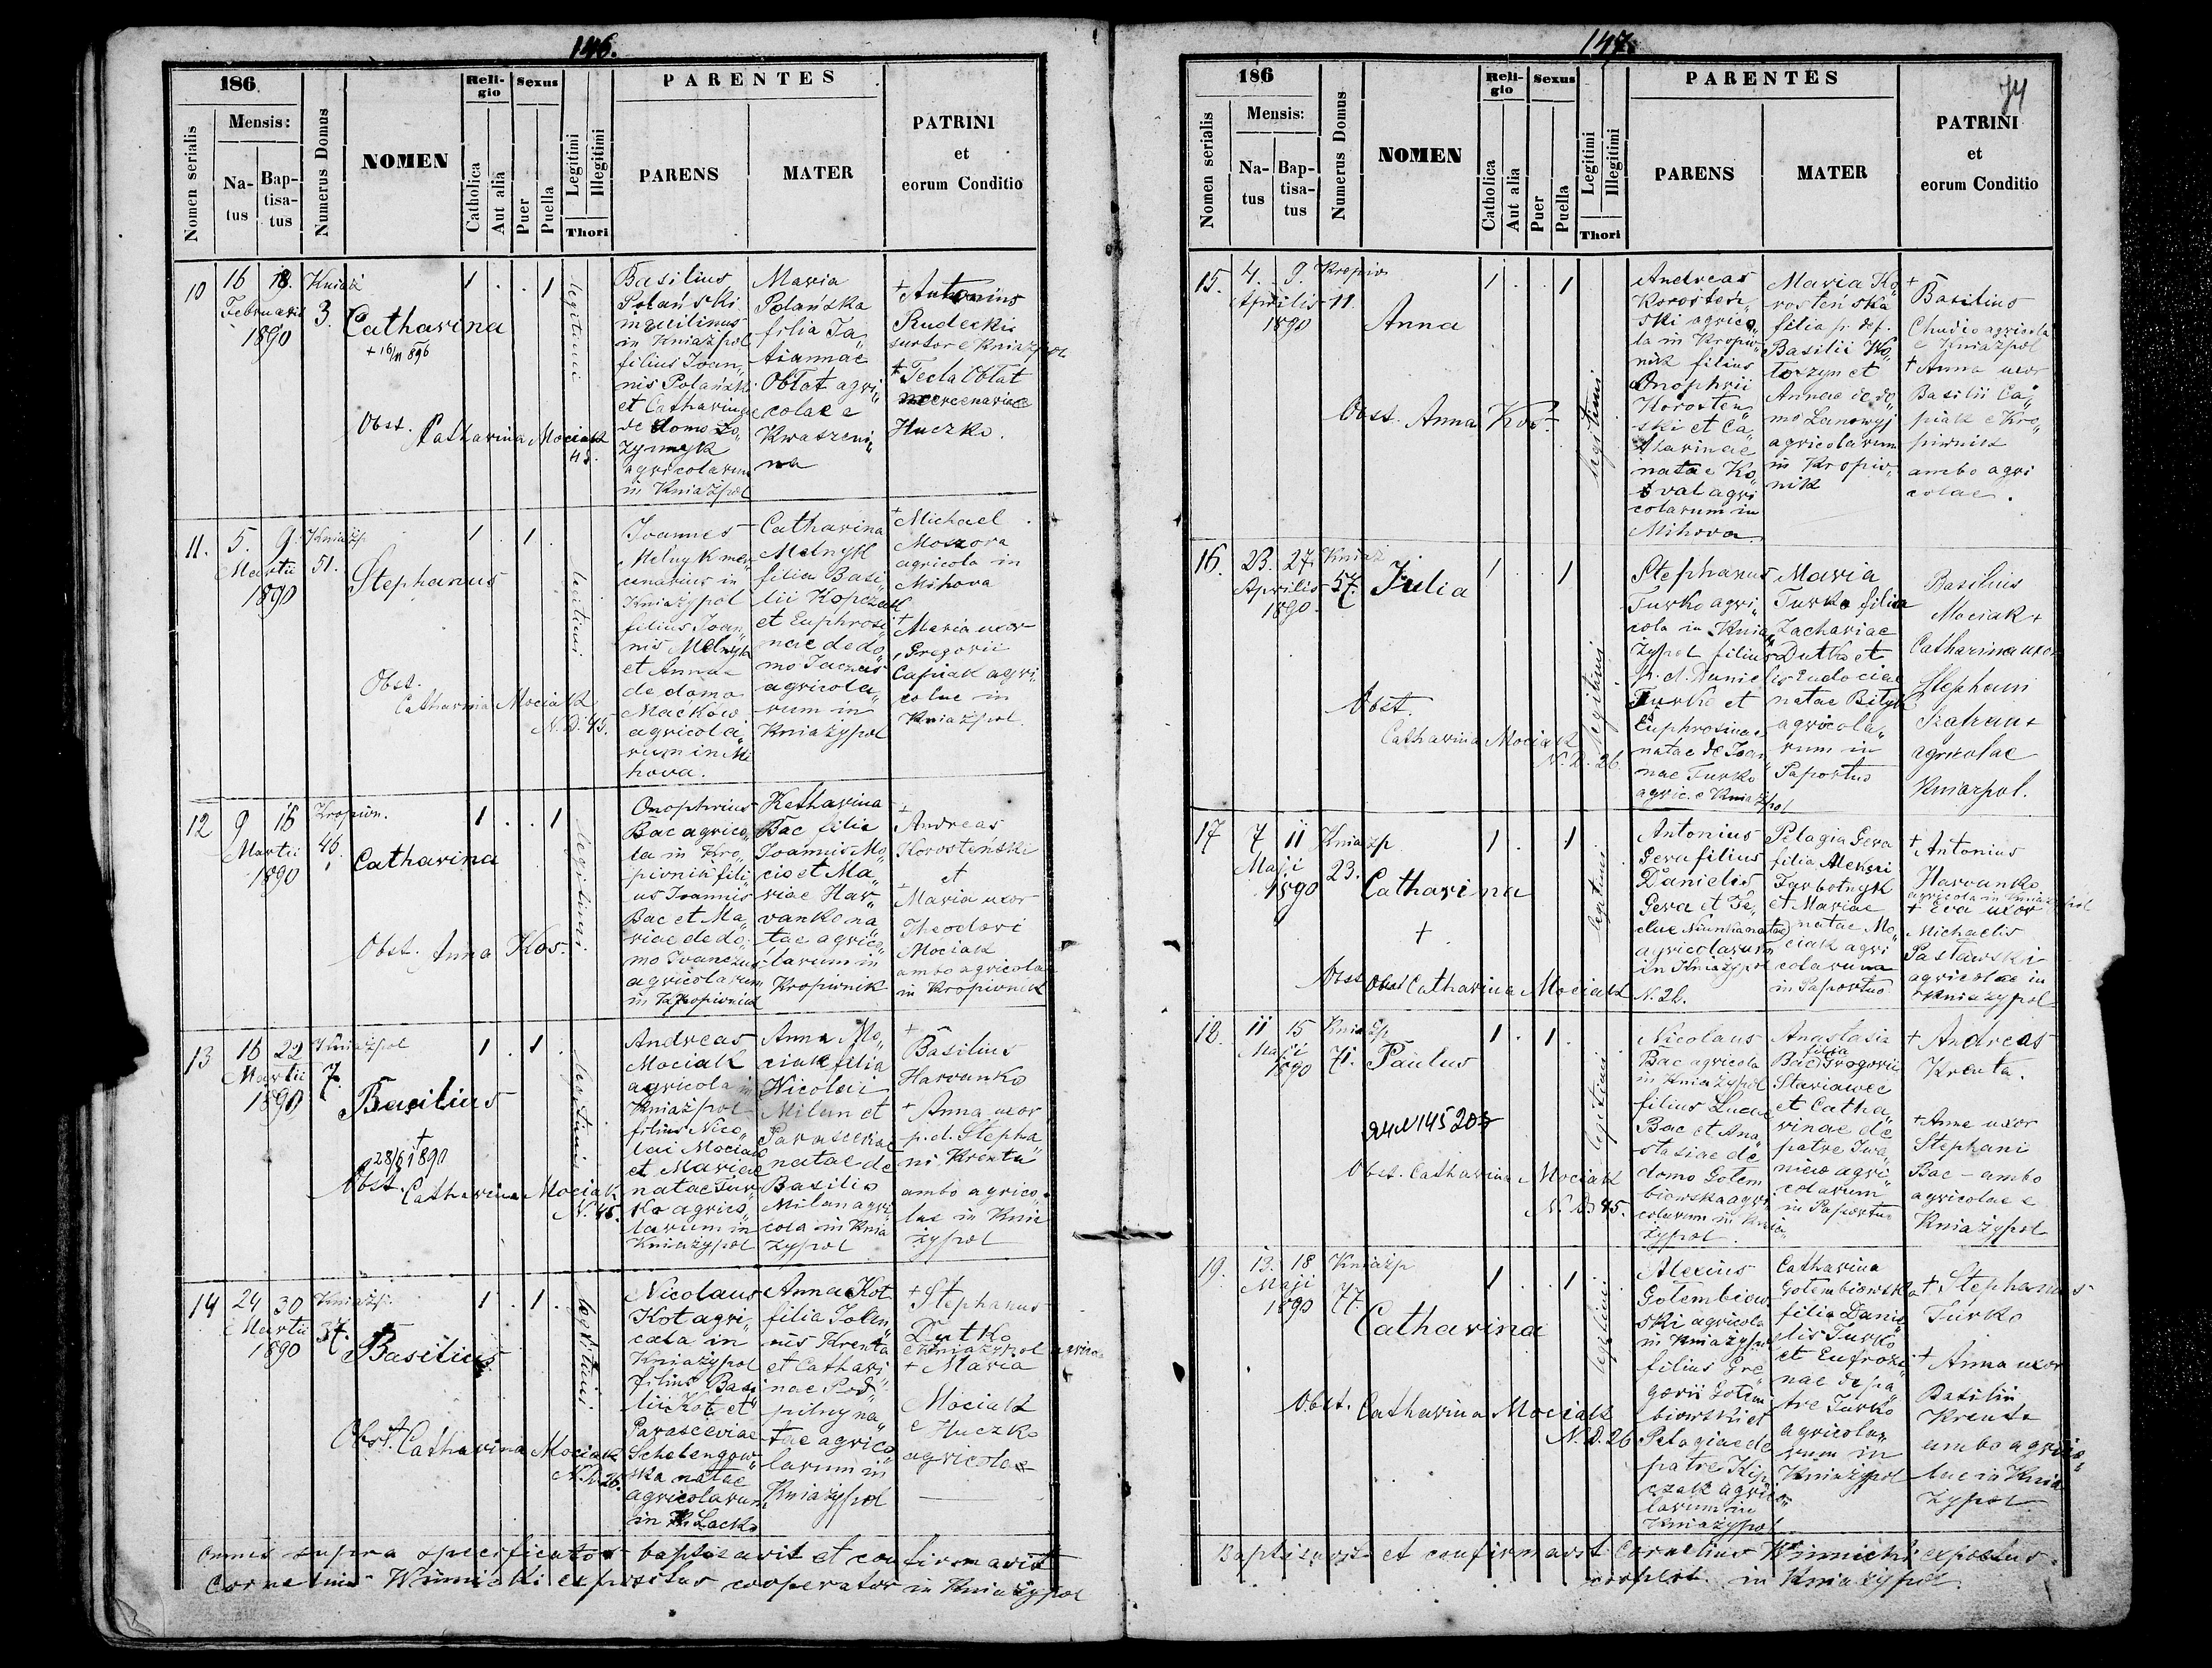 146.
186
Nomen serialis
Mensis:
Na-
tus
Bap-
tisa-
tus
Numerus Domus
NOMEN
Reli-
gio
Catholica
Aut alia
Sexus
Puer
Puella
Legitimi
Illegitimi
Thori
PARENTES
PARENS
MATER
PATRINI
et
eorum Conditio
10
16 18.
Februarii
1890
Kniaź
3.
Catharina
+ 16/11 896
Obst. Catharina Mociak
45.
1 . . 1
legitimi
Basilius
Polański
inquilinus
in Kniaźpol
filius Joan„
nis Polański
et Catharinae
de domo Ło„
zynnyk
agricolarum
in Kniaźpol
Maria
Polańska
filia Ta„
tiannae
Obłat agri„
colae e
Kwaszeni„
na
+ Antonius
Rudecki
sutor e Kniaźpol
+ Tecla Obłat
mercenariae
Huczko.
11.
5. 9.
Martii
1890
Kniaźp
51.
Stephanus
Obst.
Catharina Mociak
N. D. 45.
1 . 1 .
legitimi
Joannes
Melnyk mer„
cenarius in
Kniaźypol
filius Joan„
nis Melnyk
et Annae
de domo
Maćków
agricola„
rum in Mi
hova.
Catharina
Melnyk
filia Basi„
lii Kopczak
et Euphrosi„
nae de do„
mo Jaczus
agricola„
rum in
Kniaźypol
+ Michael
Moszora
agricola in
Mihova
+ Maria uxor
Gregorii
Capiak agri„
colae in
Kniaźpol.
12
9 16
Martii
1890
Kropiwn.
46.
Catharina
Obst. Anna Kos.
1 . . 1
legitimi
Onophrius
Bac agrico„
la in Kro„
piwnik fili„
us Joannis
Bac et Ma„
riae de do„
mo Iwanczus
agricolarum
in Kropiwnik
Katharina
Bac filia
Joannis Mo„
cio et Ma„
riae Har„
vanko na„
tae agrico„
larum in
Kropivnik
+ Andreas
Korosteński
et
+ Maria uxor
Theodori
Mociak
ambo agricolae
in Kropivnik
13
16 22
Martii
1890
Kniaźpol
7.
Basilius
+
28/6 1890
Obst. Catharina Mociak
N. 45.
1 . 1 .
legitimi
Andreas
Mociak
agricola in
Kniaźpol
filius Nico„
lai Mociak
et Mariae
natae Tur„
ko agrico„
larum in
Kniaźypol
Anna Mo„
ciak filia
Nicolai
Milan et
Parasceviae
natae de
Basilio
Milan agri„
cola in Knia
żypol
+
Basilius
Harvanko
+ Anna uxor
p. d. Stepha„
ni Krenta
ambo agrico„
lae in Knia
żypol
14
24 30
Martii
1890
Kniaźp.
37.
Basilius
Obst. Catharina Mociak
N. D. 26.
1 . 1 .
legitimi
Nicolaus
Kot agri„
cola in
Kniaźypol
filius Basi
lii Kot et
Parasceviae
natae
agricolarum
in Lacko
Anna Kot
filia Joan„
nis Krenta
et Cathari„
nae Pod„
pilny na„
tae agrico„
larum in
Kniaźypol
+ Stephanus
Dutko
e Kniaźypol
+ Maria
Mociak
e Huczko
agricolae
Omnes supra specificatos baptisavit et confirmavit
Cornelius Winnicki expositus cooperator in Kniaźypol
147.
74
186
Nomen serialis
Mensis:
Na-
tus
Bap-
tisa-
tus
Numerus Domus
NOMEN
Reli-
gio
Catholica
Aut alia
Sexus
Puer
Puella
Legitimi
Illegitimi
Thori
PARENTES
PARENS
MATER
PATRINI
et
eorum Conditio
15.
4. 9.
Aprilis
1890
Kropiv
11.
Anna
Obst. Anna Kos.
1 . . 1
legitimi
Andreas
Korosteń„
ski agrico„
la in Kropiv„
nik filius
Onophrii
Korosteń„
ski et Ca„
tharinae
natae Ko„
val agri
colarum in
Mihova
Maria Ko„
rosteńska
filia p. def.
Basilii Wo„
łoszyn et
Annae de do„
mo Lanowyj
agricolarum
in Kropiv„
nik
+
Basilius
Chudio agricola
e Kniaźpol
+ Anna uxor
Basilii Ca„
piak e Kro„
piwnik
ambo agri
colae.
16.
23. 27.
Aprilis
1890.
Kniaź
57.
Julia
Obst.
Catharina Mociak
N. D. 26.
1 . . 1
legitimi
Stephanus
Turko agri„
cola in Knia„
żypol filius
p. d. Danielis
Turko et
Euphrosinae
natae de Joan
nae Turko
agric. e Kniaźpol
Maria
Turko filia
Zachariae
Dutko et
Eudociae
natae Bityk
agricola„
rum in
Paportno
Basilius
Mociak +
Catharina uxor
Stephani
agricolae
Kniaźpol.
17
7 11
Maji
1890
Kniaźp
23.
Catharina
+
Obst. Catharina Mociak
N. 26.
1 . . 1
legitimi
Antonius
Gera filius
Danielis
Gera et Te„
clae natae
agricolarum
in Kniaźypol
Pelagia Gera
filia Alexii
et Mariae
natae Mo„
ciak agri
colarum
in Paportno
+ Antonius
Harvanko
agricola in Kniaźypol
+ Eva uxor
Michaelis
Pasławski
agricolae in
Kniaźypol
18.
11 15
Maji
1890
Kniaźp
71.
Paulus
Obst. Catharina Mociak
N. D 45.
1 . 1 .
legitimi
Nicolaus
Bac agricola
in Kniaźypol
filius Lucae
Bac et Ana„
stasiae de
domo Gołem
biowska agri„
colarum in Knia„
żypol.
Anastasia
Bac filia Gregorii
Stariawec
et Catha„
rinae de
patre Iwa„
niciw agri„
colarum
in Paportno
+ Andreas
Krenta.
+ Anna uxor
Stephani
Bac - ambo
agricolae e
Kniaźypol
19.
13. 18
Maji
1890
Kniaźp
77.
Catharina
Obst. Catharina Mociak
N. D. 26
1 . . 1
legitimi
Alexius
Gołembiow„
ski agricola
in Kniaźypol
filius Gre„
gorii Gołem
biowski et
Pelagiae de
patre Kop„
czak agrico„
larum in
Kniaźypol
Catharina
Gołembiowska
filia Danie„
lis Turko
et Eufrozi„
nae de pa„
tre Turko
agricola„
rum in
Kniaźypol
+ Stephanus
Turko
+ Anna uxor
Basilii
Krenta
ambo agrico„
lae in Knia
żypol
Baptisavit et confirmavit Cornelius Winnicki expositus
in Kniaźypol